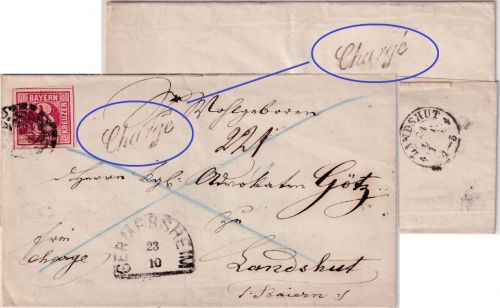 Chargé
BAYERN
KREUZER
Chargé
Wohlgeboren
221
Herrn Kgl. Advokaten Götz
zu
Landshut
/: Baiern :/
frei
charge
GERMERSHEIM
23
10
LANDSHUT
24
4-5